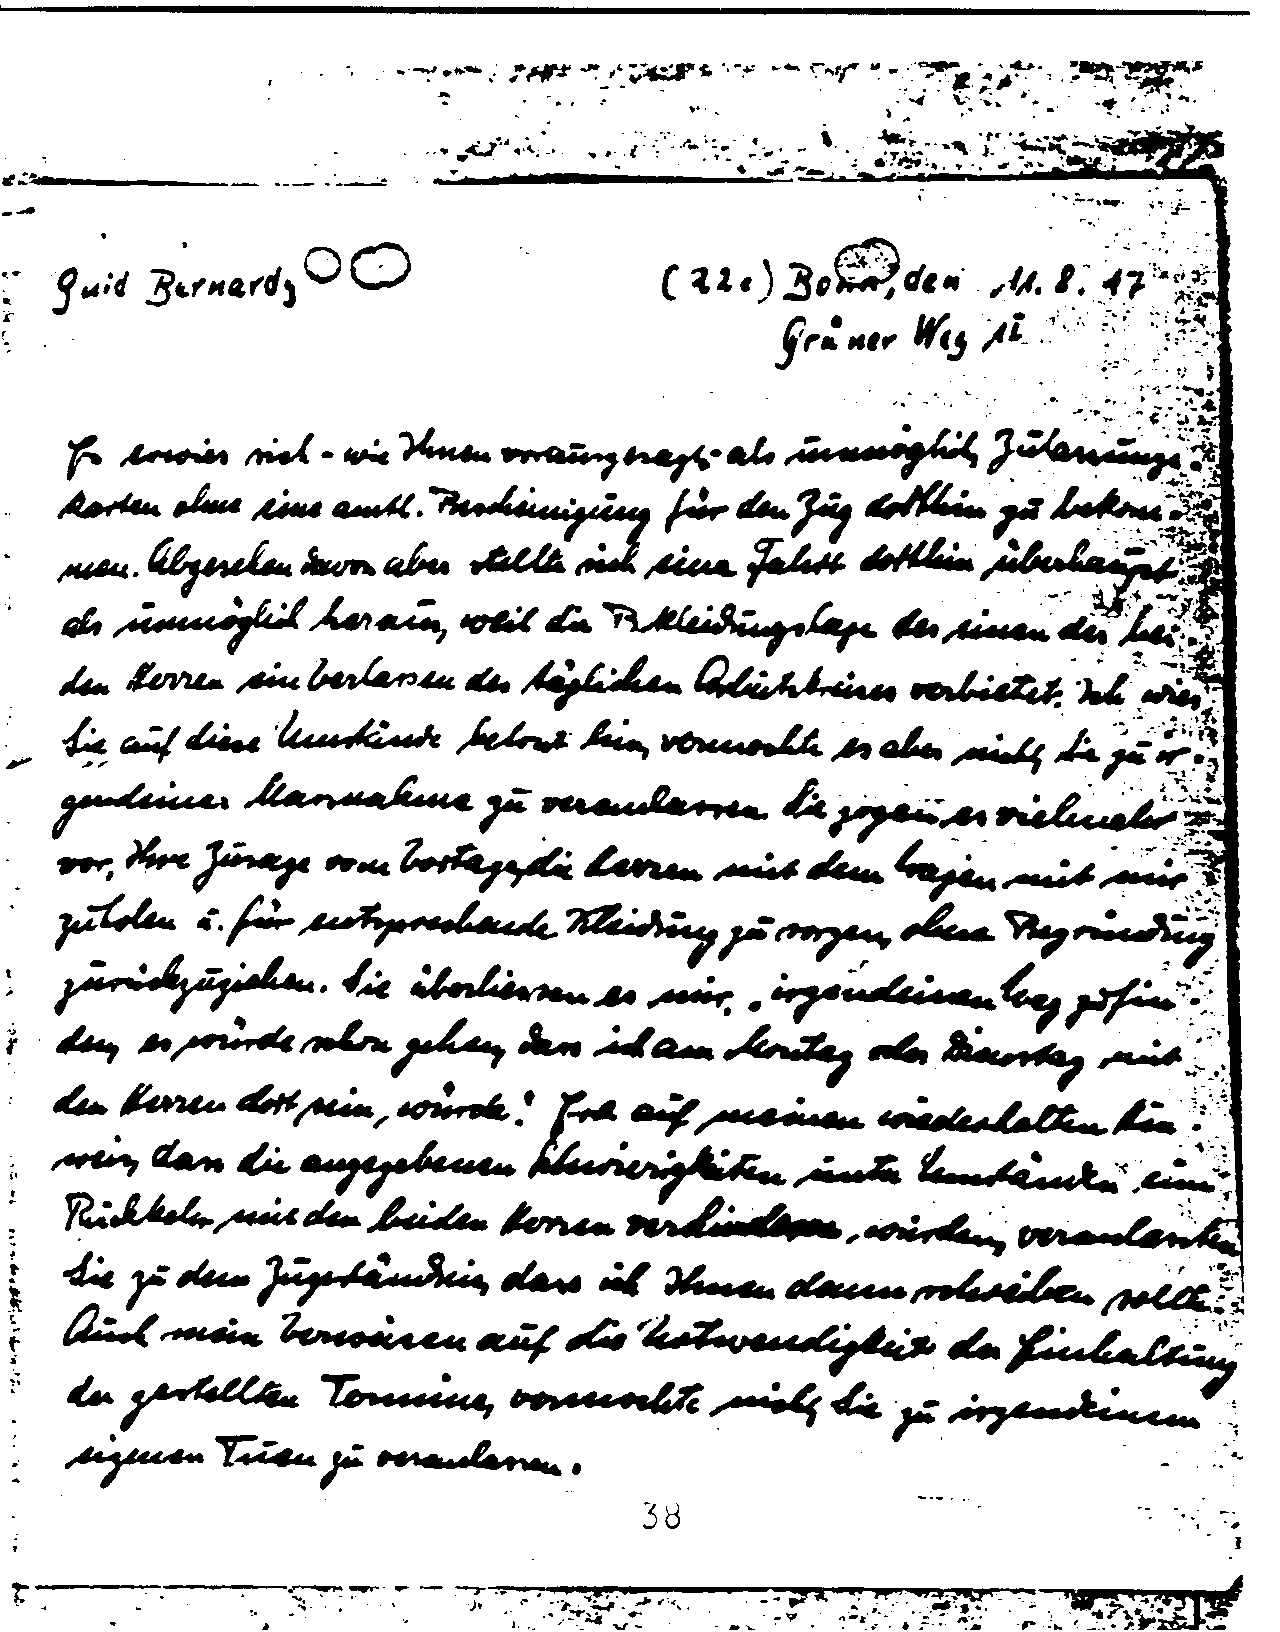 Guid Bernardy
(22c) Bonn, den 11. 8. 47
Grüner Weg 11
Es erwies sich - wie Ihnen vorausgesagt - als unmöglich, Zulassungs-
karten ohne eine amtl. Bescheinigung für den Zug dorthin zu bekom-
men. Abgesehen davon aber stellte sich eine Fahrt dorthin überhaupt
als unmöglich heraus, weil die Bekleidungslage des einen der bei-
den Herren ein Verlassen des täglichen Arbeitskreises verbietet. Ich wies
Sie auf diese Umstände betont hin, vermochte es aber nicht, Sie zu ir-
gendeiner Massnahme zu veranlassen. Sie zogen es vielmehr
vor, Ihre Zusage vom Vortage, die Herren mit dem Wagen mit mir
zu holen u. für entsprechende Kleidung zu sorgen, ohne Begründung
zurückzuziehen. Sie überliessen es mir, irgendeinen Weg zu fin-
den, es würde schon gehen, dass ich am Montag oder Dienstag mit
den Herren dort sein würde! Erst auf meinen wiederholten Hin-
weis, dass die angegebenen Schwierigkeiten unter Umständen eine
Rückkehr mit den beiden Herren verhindern würden, veranlassten
Sie zu dem Zugeständnis, dass ich Ihnen dann schreiben sollte.
Auch mein Verweisen auf die Notwendigkeit der Einhaltung
der gestellten Termine, vermochte nicht, Sie zu irgendeinem
eigenen Tuen zu veranlassen.
38